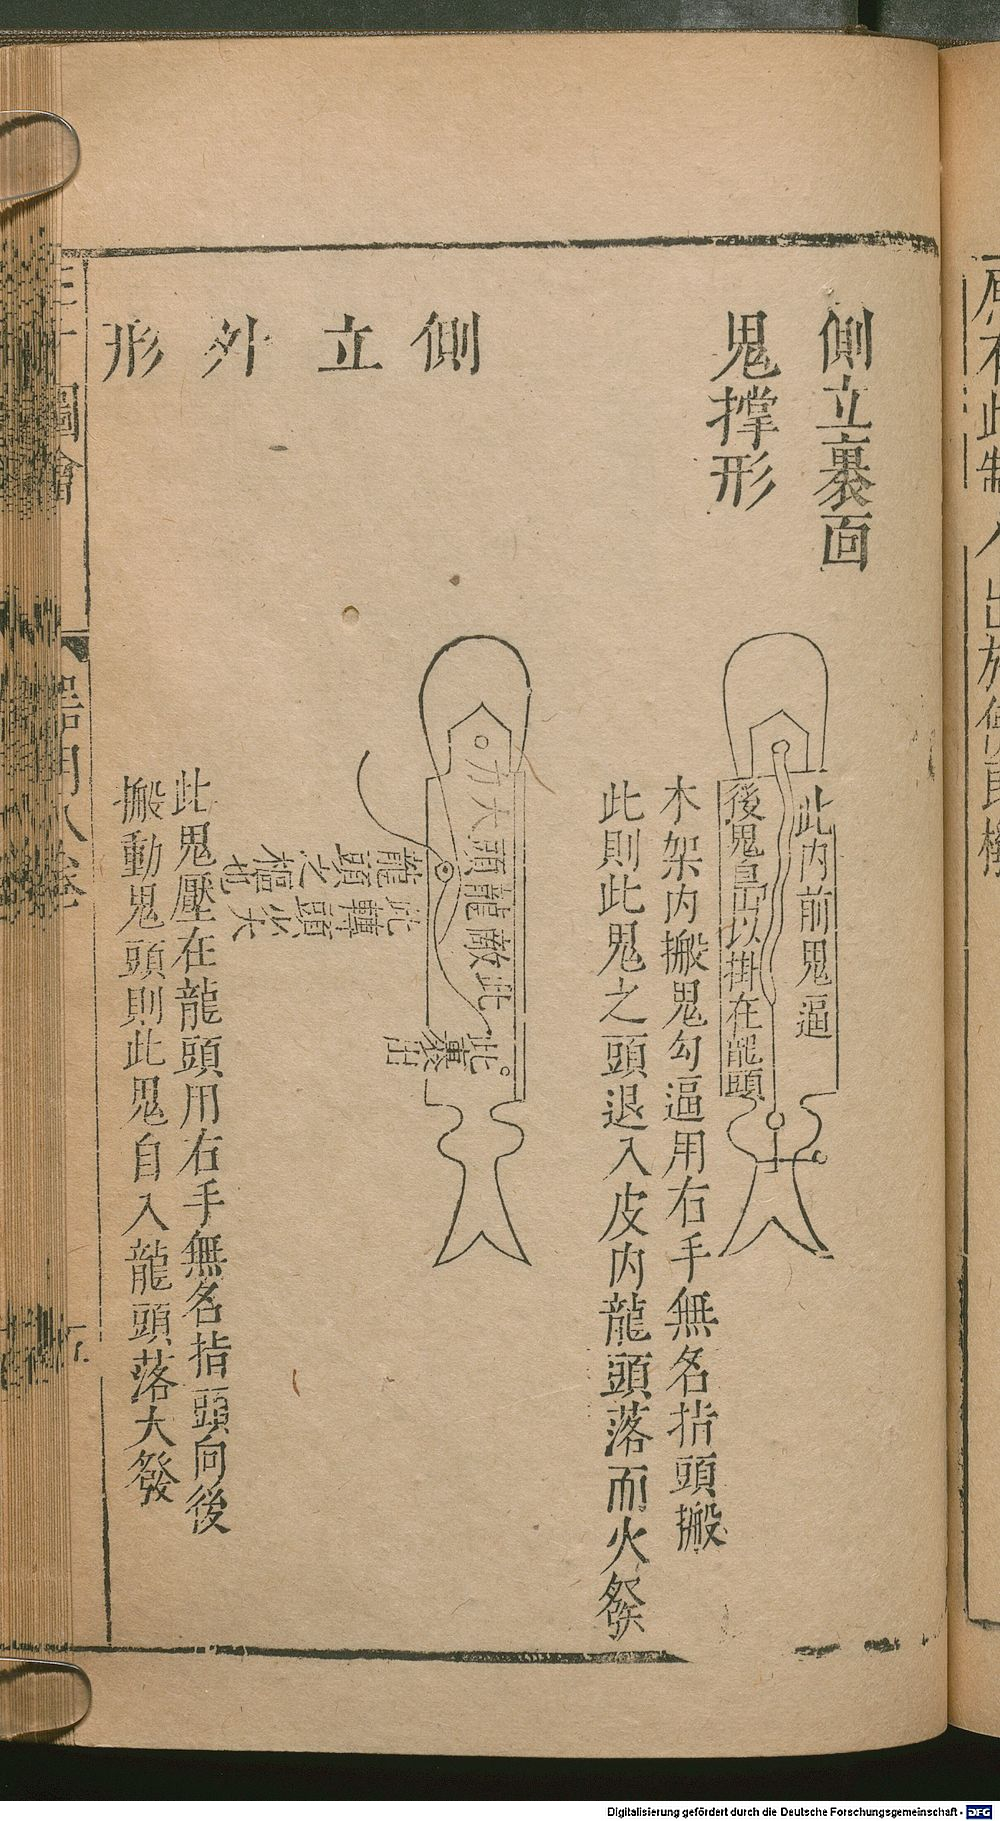 側立裏面
鬼撑形
此内前鬼逼
後鬼皂出以掛在龍頭
木架内搬鬼勾逼用右手無名指頭搬
此則此鬼之頭退入皮内龍頭落而火發
側立外形
此敵龍頭大刀
此裏出
此轉頭少大
龍頭之樞也
此鬼壓在龍頭用右手無名指頭向後
搬動鬼頭則此鬼自入龍頭落大發
圖會
器用八卷
原有此制
Digitalisierung gefördert durch die Deutsche Forschungsgemeinschaft - DFG